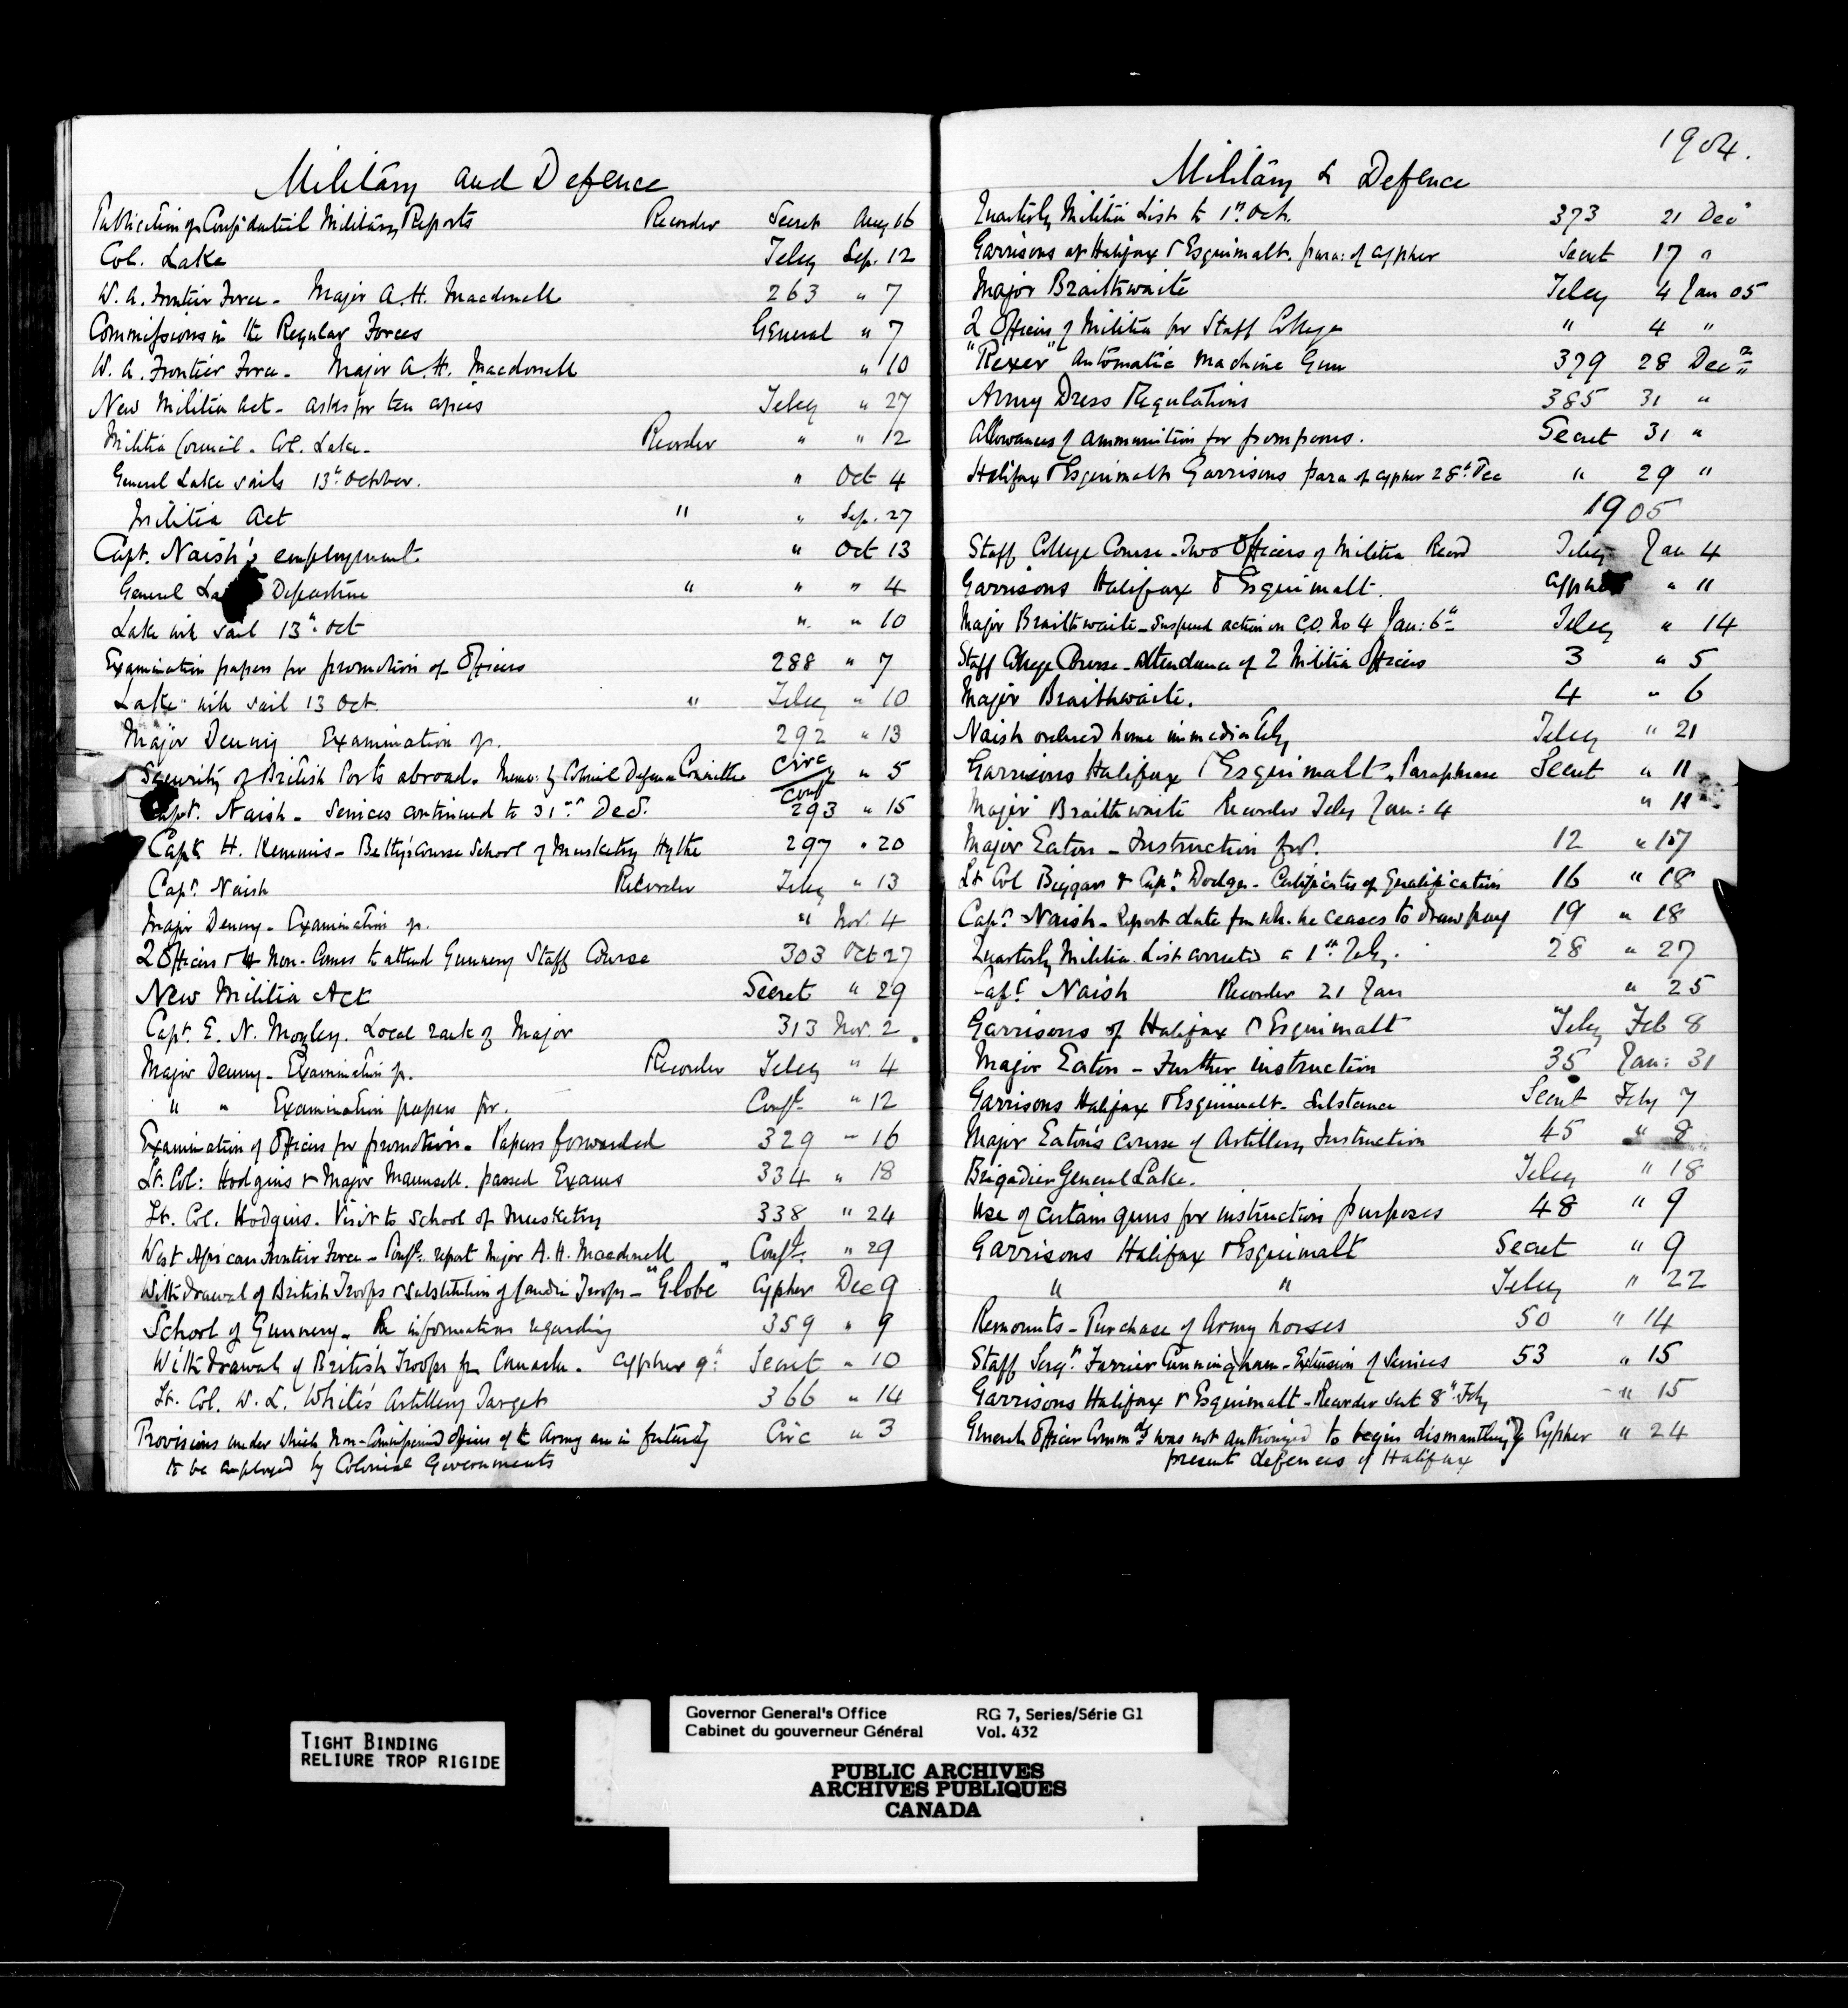 Military and Defence
Publication of Confidential Military Reports Recorder Secret Aug 16
Col. Lake Teleg Sep. 12
W. A. Frontier Force - Major A. H. Macdonell 263 " 7
Commissions in the Regular Forces General " 7
W. A. Frontier Force - Major A. H. Macdonell " 10
New Militia Act - asks for ten copies Teleg " 27
Militia Council - Col. Lake - Recorder " " 12
General Lake sails 13th October. " Oct 4
Militia Act " " Sep. 27
Capt. Naish's employment. " Oct 13
General La Departure " " " 4
Lake will sail 13th Oct " " 10
Examination papers for promotion of Officers 288 " 7
Lake will sail 13 Oct. " Teleg " 10
Major Denny Examination of. 292 " 13
Security of British Ports abroad. Memo: by Colonial Defence Committee Circ Conf " 5
Capt. Naish - Services continued to 31st Dec. 293 " 15
Capt H. Kemmis-Betty's course School of Musketry Hythe 297 " 20
Capt. Naish Recorder Teleg " 13
Major Denny - Examination of. " Nov. 4
2 Officers & 4 Non-Coms to attend Gunnery Staff Course 303 Oct 27
New Militia Act Secret " 29
Capt E. N. Mozley. Local rank of Major 313 Nov. 2
Major Denny - Examination of. Recorder Teleg " 4
" " Examination papers for. Conft " 12
Examination of Officers for promotion - Papers forwarded 329 " 16
Lt. Col: Hodgins & Major Maunsell. passed Exams 334 " 18
Lt. Col. Hodgins. Visit to School of Musketry 338 " 24
West African Frontier Force - Conf: report Major A. H. Macdonell Conft " 29
Withdrawal of British Troops & substitution of Canadn Troops - "Globe" Cypher Dec 9
School of Gunnery - Re information regarding 359 " 9
Withdrawal of British Troops fm Canada. Cypher 9th Secret " 10
Lt. Col. W. L. White's Artillery Target 366 " 14
Provisions under which Non-Commissioned Officers of the Army are in future Circ " 3
to be employed by Colonial Governments
1904.
Military & Defence
Quarterly Militia List to 1st Oct. 373 21 Dec
Garrisons at Halifax & Esquimalt. para: of cypher Secret 17 "
Major Braithwaite Teleg 4 Jan 05
2 Officers of Militia for Staff College " 4 "
"Rexer" Automatic Machine Gun 379 28 Dec
Army Dress Regulations 385 31 "
Allowances of ammunition for pompoms. Secret 31 "
Halifax & Esquimalt Garrisons para of cypher 28th Dec " 29 "
1905
Staff College Course - Two Officers of Militia Record Teleg Jan 4
Garrisons Halifax & Esquimalt. Cypher " 11
Major Braithwaite - Suspend action on C.O. No 4 Jan: 6th Teleg " 14
Staff College Course - Attendance of 2 Militia Officers 3 " 5
Major Braithwaite. 4 " 6
Naish ordered home immediately Teleg " 21
Garrisons Halifax & Esquimalt. Paraphrase Secret " 11
Major Braithwaite Recorder Teleg Jan: 4 " 11
Major Eaton - Instruction for. 12 " 17
Lt Col Biggar & Capt. Dodge - Certificates of Qualification 16 " 18
Capt. Naish - Report date fm wh. he ceases to draw pay 19 " 18
Quarterly Militia List corrected a 1st 28 " 27
Capt Naish Recorder 21 Jan " 25
Garrisons of Halifax & Esquimalt Teleg Feb 8
Major Eaton - Further instruction 35 Jan: 31
Garrisons Halifax & Esquimalt - Substance Secret Feby 7
Major Eaton's course of Artillery Instruction 45 " 8
Brigadier General Lake. Teleg " 18
Use of certain guns for instruction purposes 48 " 9
Garrisons Halifax & Esquimalt Secret " 9
" " Teleg " 22
Remounts - Purchase of Army horses 50 " 14
Staff Sergt. Farrier Cunningham - Extension of Services 53 " 15
Garrisons Halifax & Esquimalt - Recorder Sect 8th Feby " 15
General Officer Commdg was not authorized to begin dismantling of Cypher " 24
present defences of Halifax
TIGHT BINDING
RELIURE TROP RIGIDE
Governor General's Office RG 7, Series/Série G1
Cabinet du gouverneur Général Vol. 432
PUBLIC ARCHIVES
ARCHIVES PUBLIQUES
CANADA